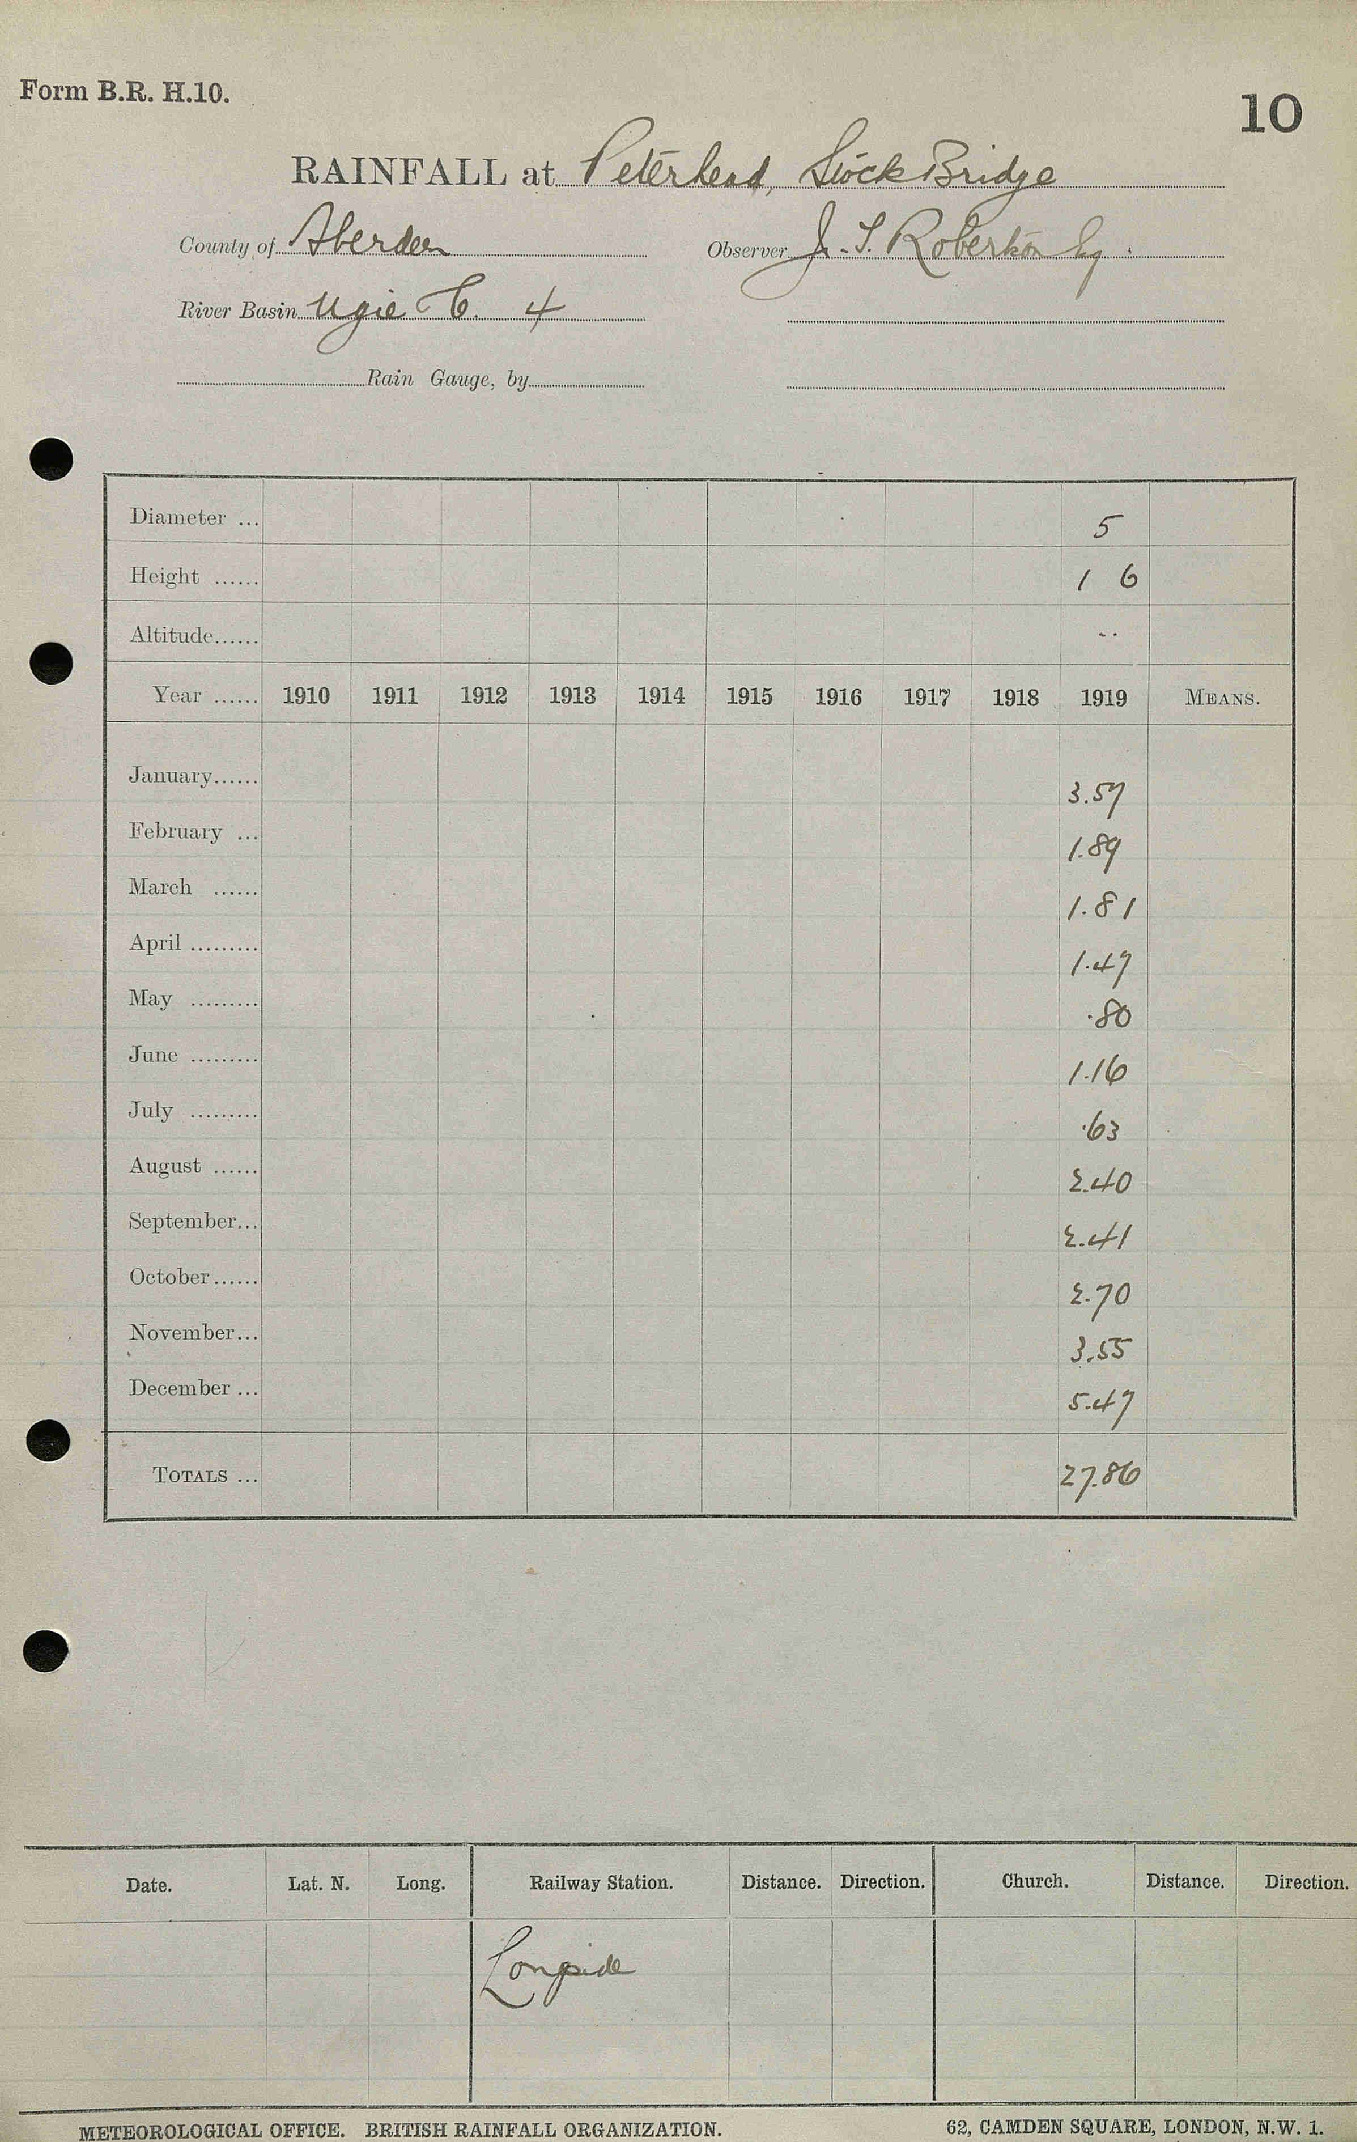 Form B.R. H.10.
10
RAINFALL at Peterhead, Stock Bridge
County of Aberdeen Observer J. S. Robertson Esq.
River Basin Ugie C. 4
Rain Gauge, by
Diameter ... 5
Height ...... 1 6
Altitude...... ..
Year ...... 1910 1911 1912 1913 1914 1915 1916 1917 1918 1919 MEANS.
January...... 3.57
February ... 1.89
March ...... 1.81
April ......... 1.47
May ......... .80
June ......... 1.16
July ......... .63
August ...... 2.40
September... 2.41
October...... 2.70
November... 3.55
December ... 5.47
TOTALS ... 27.86
Date. Lat. N. Long. Railway Station. Distance. Direction. Church. Distance. Direction.
Longside
METEOROLOGICAL OFFICE. BRITISH RAINFALL ORGANIZATION. 62, CAMDEN SQUARE, LONDON, N.W. 1.